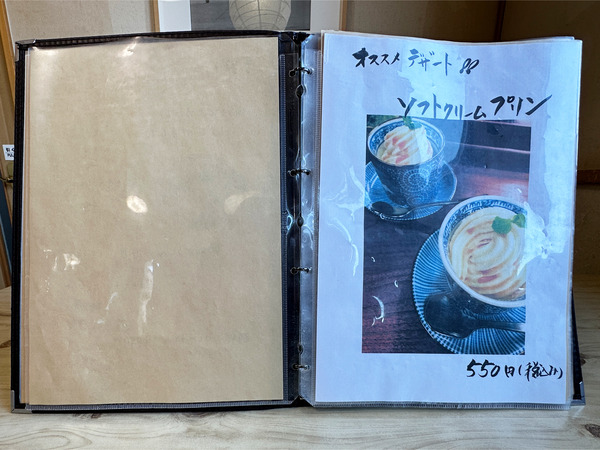 オススメ デザート !!
ソフトクリームプリン
550円(税込み)